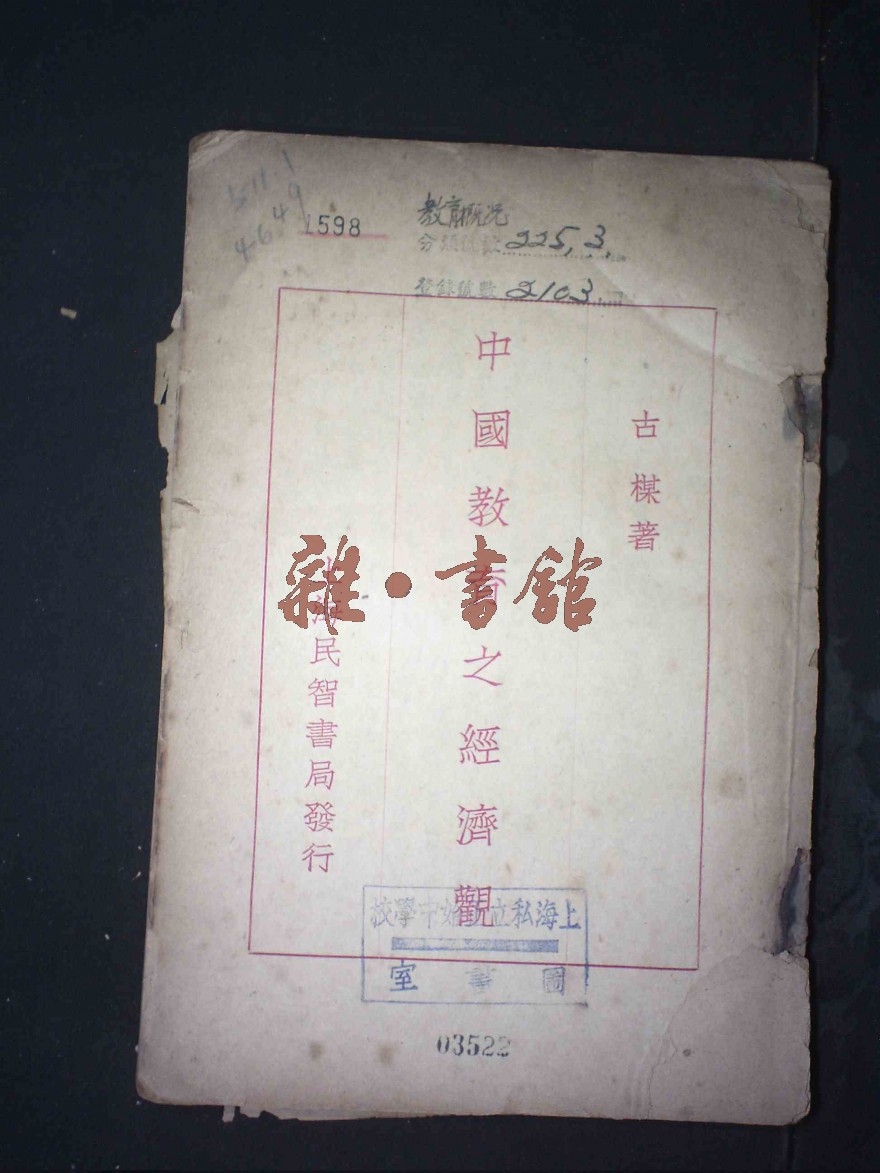 511.1
4649
1598
教育概况
分類號數 225,3
登錄號數 2103
古楳著
中國教育之經濟觀
上海民智書局發行
雜·書館
校學中 立私海上
室書圖
03522